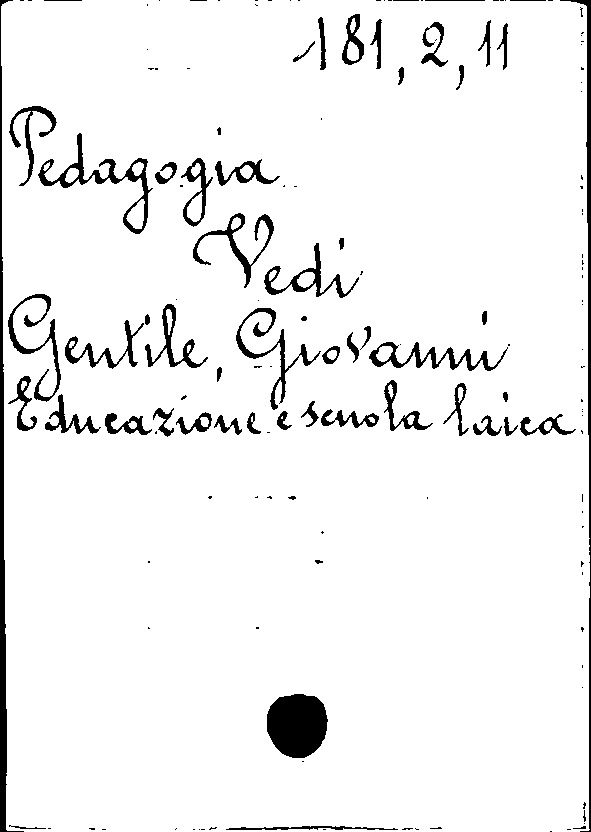 181, 2, 11
Pedagogia
Vedi
Gentile, Giovanni
Educazione e scuola laica